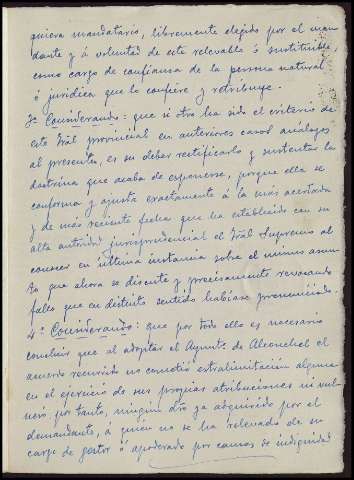 quiera mandatario, libremente elejido por el man-
dante y á voluntad de este relevable ó sustituible,
como cargo de confianza de la persona natural
ó juridica que lo confiere y retribuye.
3º Considerando: que si otro ha sido el criterio de
este Tral provincial en anteriores casos análogos
al presente, es su deber rectificarlo y sustentar la
doctrina que acaba de exponerse, porque ella se
conforma y ajusta exactamente á la más acertada
y de más reciente fecha que ha establecido con su
alta autoridad jurisprudencial el Tral Supremo al
conocer en última instancia sobre el mismo asun-
to que ahora se discute y precisamente revocando
fallos que en distinto sentido habíase pronunciado.
4º Considerando: que por todo ello es necesario
concluir que al adoptar el Ayunto de Alconchel el
acuerdo recurrido no cometió extralimitación alguna
en el ejercicio de sus propias atribuciones ni vul-
neró por tanto, ningún dro ya adquirido por el
demandante, á quien no se ha relevado de su
cargo de gestor ó apoderado por causas de indignidad